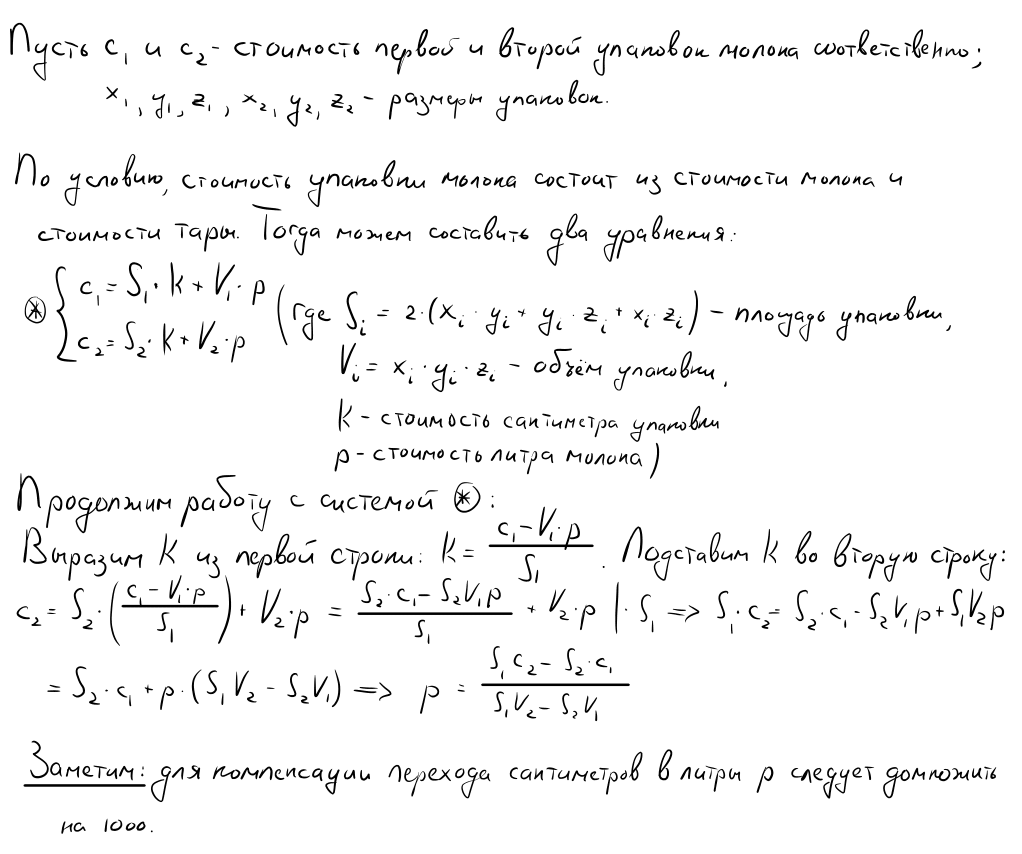 Пусть c₁ и c₂ - стоимость первой и второй упаковок молока соответственно;
x₁, y₁, z₁, x₂, y₂, z₂ - размеры упаковок.
По условию, стоимость упаковки молока состоит из стоимости молока и
стоимости тары. Тогда можем составить два уравнения:
⊛ { c₁ = S₁·k + V₁·p
c₂ = S₂·k + V₂·p
(где Sᵢ = 2·(xᵢ·yᵢ + yᵢ·zᵢ + xᵢ·zᵢ) - площадь упаковки,
Vᵢ = xᵢ·yᵢ·zᵢ - объём упаковки,
k - стоимость сантиметра упаковки
p - стоимость литра молока)
Продолжим работу с системой ⊛:
Выразим k из первой строки: k = (c₁ - V₁·p)/S₁. Подставим k во вторую строку:
c₂ = S₂·((c₁ - V₁·p)/S₁) + V₂·p = (S₂·c₁ - S₂V₁p)/S₁ + V₂·p |·S₁ => S₁·c₂ = S₂·c₁ - S₂V₁p + S₁V₂p
= S₂·c₁ + p·(S₁V₂ - S₂V₁) => p = (S₁c₂ - S₂·c₁)/(S₁V₂ - S₂V₁)
Заметим: для компенсации перехода сантиметров в литры p следует домножить
на 1000.